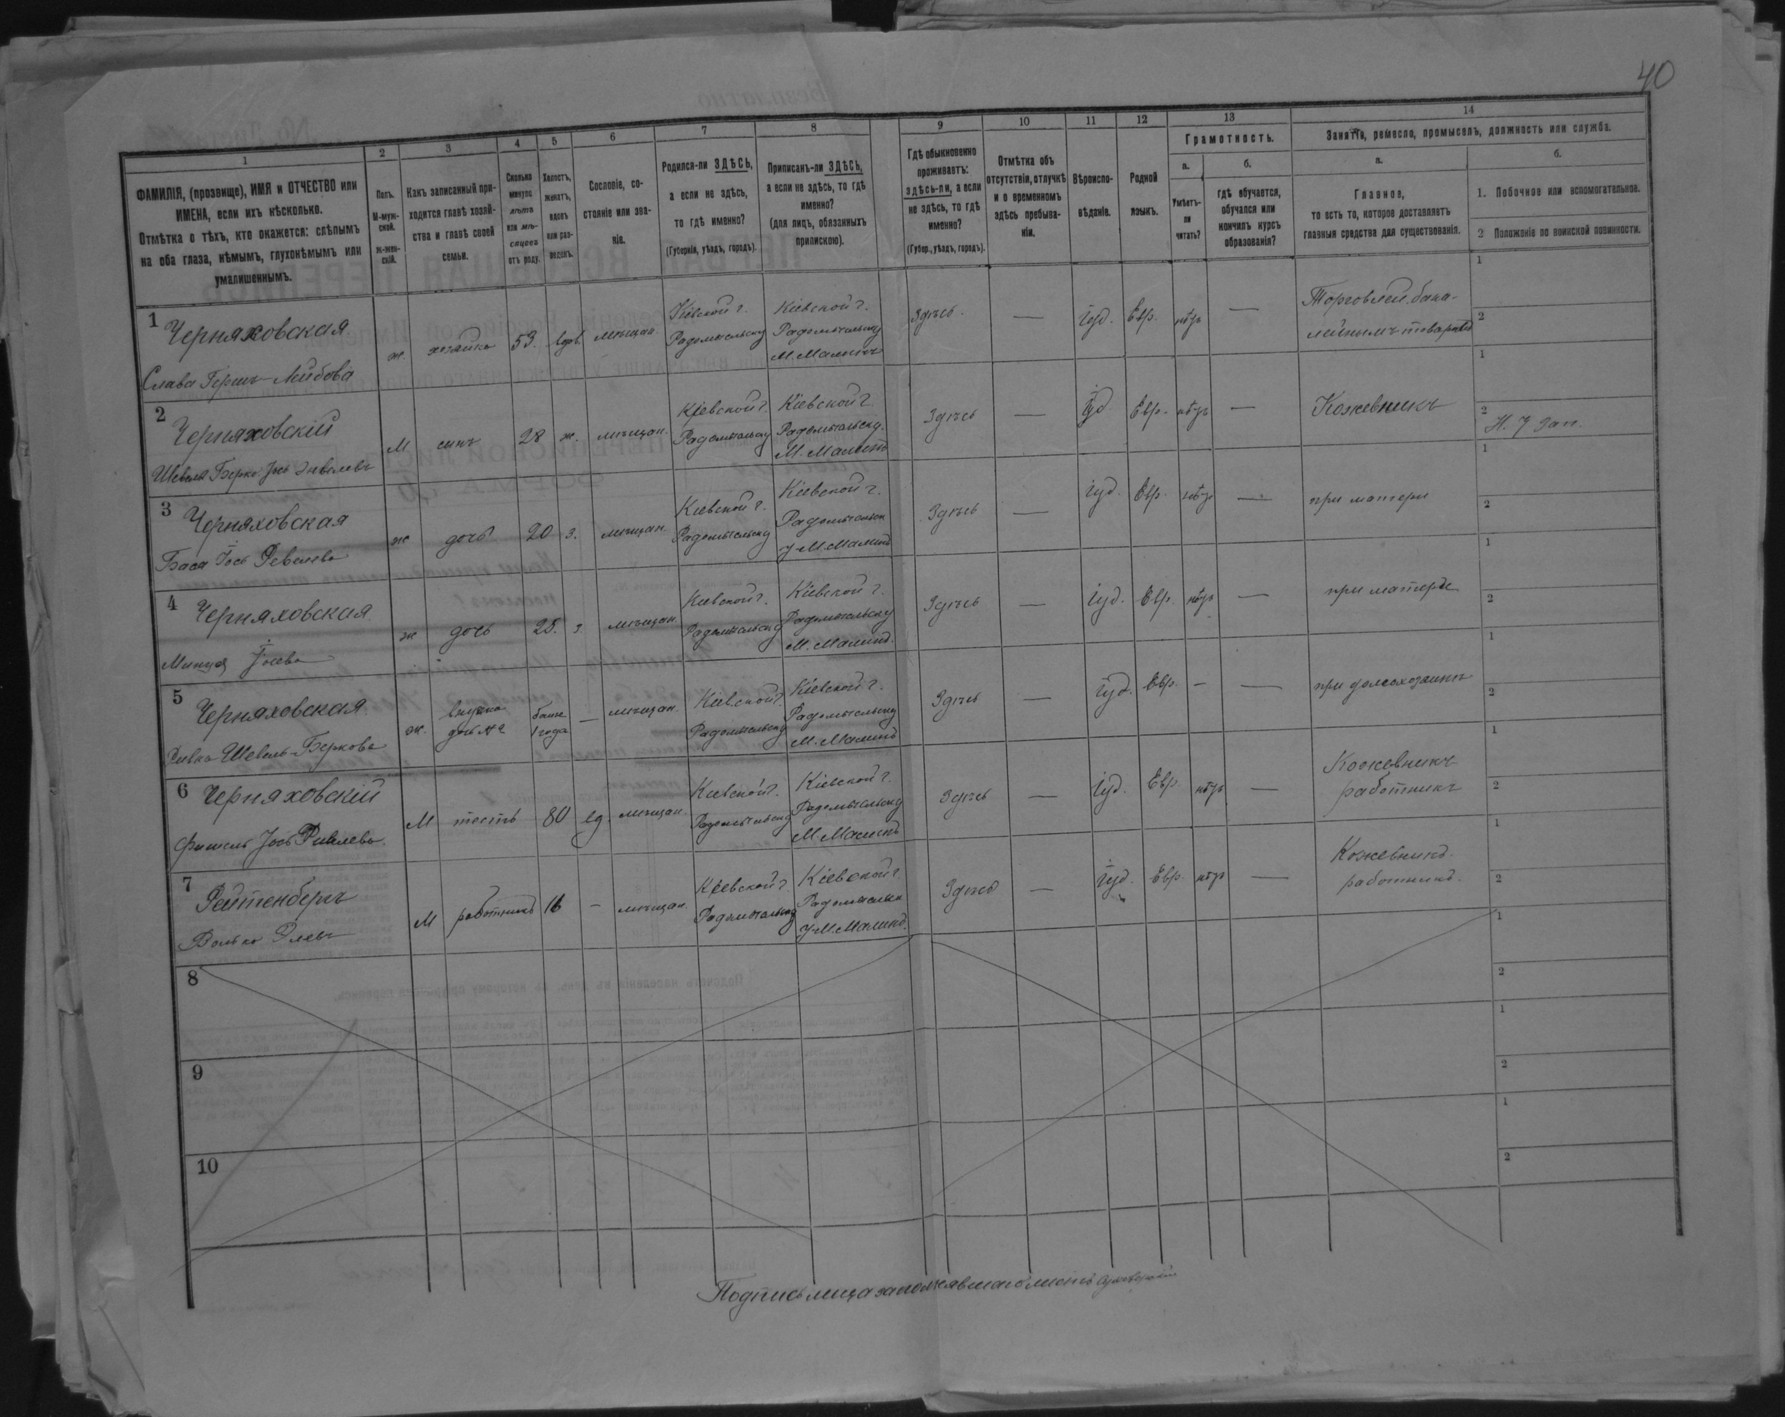 40
1 2 3 4 5 6 7 8 9 10 11 12 13 14
ФАМИЛІЯ, (прозвище), ИМЯ и ОТЧЕСТВО или
ИМЕНА, если ихъ нѣсколько.
Отмѣтка о тѣхъ, кто окажется: слѣпымъ
на оба глаза, нѣмымъ, глухонѣмымъ или
умалишеннымъ.
Полъ.
М-муж-
ской.
Ж-жен-
скій.
Какъ записанный при-
ходится главѣ хозяй-
ства и главѣ своей
семьи.
Сколько
минуло
лѣтъ
или мѣ-
сяцевъ
отъ роду.
Холостъ,
женатъ,
вдовъ
или раз-
веденъ.
Сословіе, со-
стояніе или зва-
ніе.
Родился-ли ЗДѢСЬ,
а если не здѣсь,
то гдѣ именно?
(Губернія, уѣздъ, городъ).
Приписанъ-ли ЗДѢСЬ,
а если не здѣсь, то гдѣ
именно?
(для лицъ, обязанныхъ
припискою).
Гдѣ обыкновенно
проживаетъ:
здѣсь-ли, а если
не здѣсь, то гдѣ
именно?
(Губер., уѣздъ, городъ).
Отмѣтка объ
отсутствіи, отлучкѣ
и о временномъ
здѣсь пребыва-
ніи.
Вѣроиспо-
вѣданіе.
Родной
языкъ.
Грамотность.
а.
Умѣетъ-
ли
читать?
б.
гдѣ обучается,
обучался или
кончилъ курсъ
образованія?
Занятіе, ремесло, промыселъ, должность или служба.
а.
Главное,
то есть то, которое доставляетъ
главныя средства для существованія.
б.
1. Побочное или вспомогательное.
2 Положеніе по воинской повинности.
1 Черняховская
Слава Гершъ-Лейбова
ж. хозяйка 53. вдов. мѣщан.
Кіевской г.
Радомысльску
Кіевской г.
Радомысльску
М. Малинъ
Здѣсь. — Іуд. Евр. нѣтъ —
Торговлей бака-
лейнымъ товаромъ
1
2
2 Черняховскій
Шевель Берко
М сынъ 28 ж. мѣщан.
Кіевской г.
Радомысльску
Кіевской г.
Радомысльску
М. Малинъ
Здѣсь — Іуд Евр. нѣтъ —
Кожевникъ
1
2
3 Черняховская
Бася
ж дочь 20 мѣщан.
Кіевской г.
Радомысльску
Кіевской г.
Радомысльск
у М. Малинъ
Здѣсь — Іуд. Евр. нѣтъ — при матери
1
2
4 Черняховская
ж дочь 28. мѣщан.
Кіевской г.
Радомысльску
Кіевской г.
Радомысльску
М. Малинъ
Здѣсь — Іуд. Евр. нѣтъ — при матери
1
2
5 Черняховская
Ривка Шевель-Беркова
ж. внучка
дочь № 2
1 года — мѣщан.
Кіевской г.
Радомысльску
Кіевской г.
Радомысльску
М. Малинъ
Здѣсь — Іуд. Евр. — —
1
2
6 Черняховскій
М тесть 80 вд. мѣщан.
Кіевской г.
Радомысльску
Кіевской г.
Радомысльску
М. Малинъ
Здѣсь — Іуд. Евр. нѣтъ —
Кожевникъ
работникъ
1
2
7 Фейтенбергъ
М работникъ 16 — мѣщан.
Кіевской г.
Радомысльску
Кіевской г.
Радомысльск
у М. Малинъ
Здѣсь — Іуд. Евр. нѣтъ —
Кожевникъ
работникъ
1
2
8
1
2
9
1
2
10
1
2
Подпись лица заполнявшаго листъ